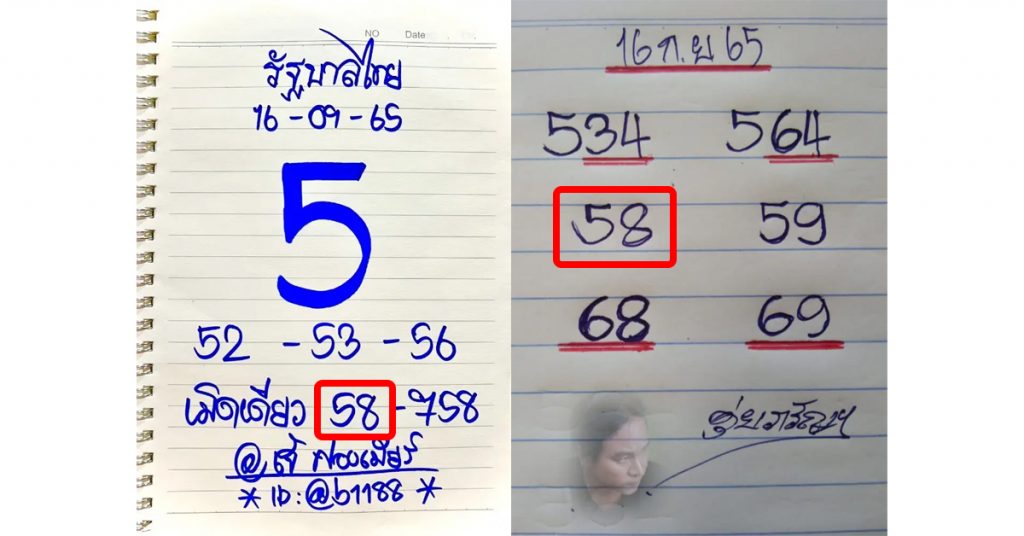 NO Date
รัฐบาลไทย
16-09-65
5
52 - 53 - 56
เม็ดเดียว 58-758
@เจ๊
*ID:@b1188*
16 ก.ย 65
534 564
58 59
68 69